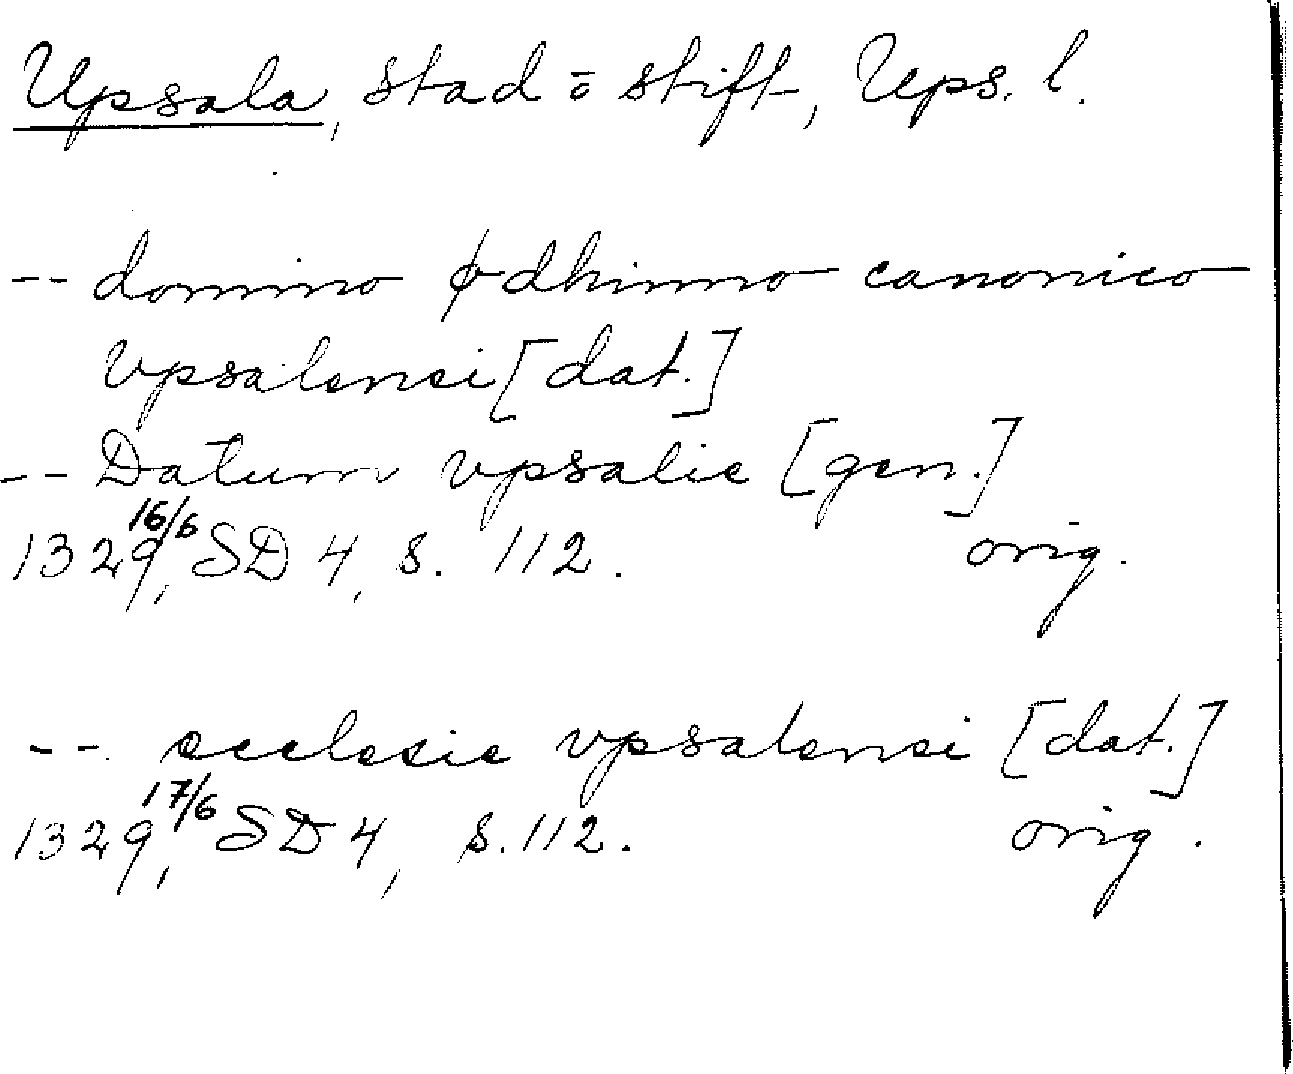 Upsala, stad o stift, Ups. l.
-- domino ødhinno canonico
vpsalensi [dat.]
-- Datum vpsalie [gen.]
1329 16/6, SD 4, s. 112. orig.
-- ecclesie vpsalensi [dat.]
1329 17/6, SD 4, s. 112. orig.